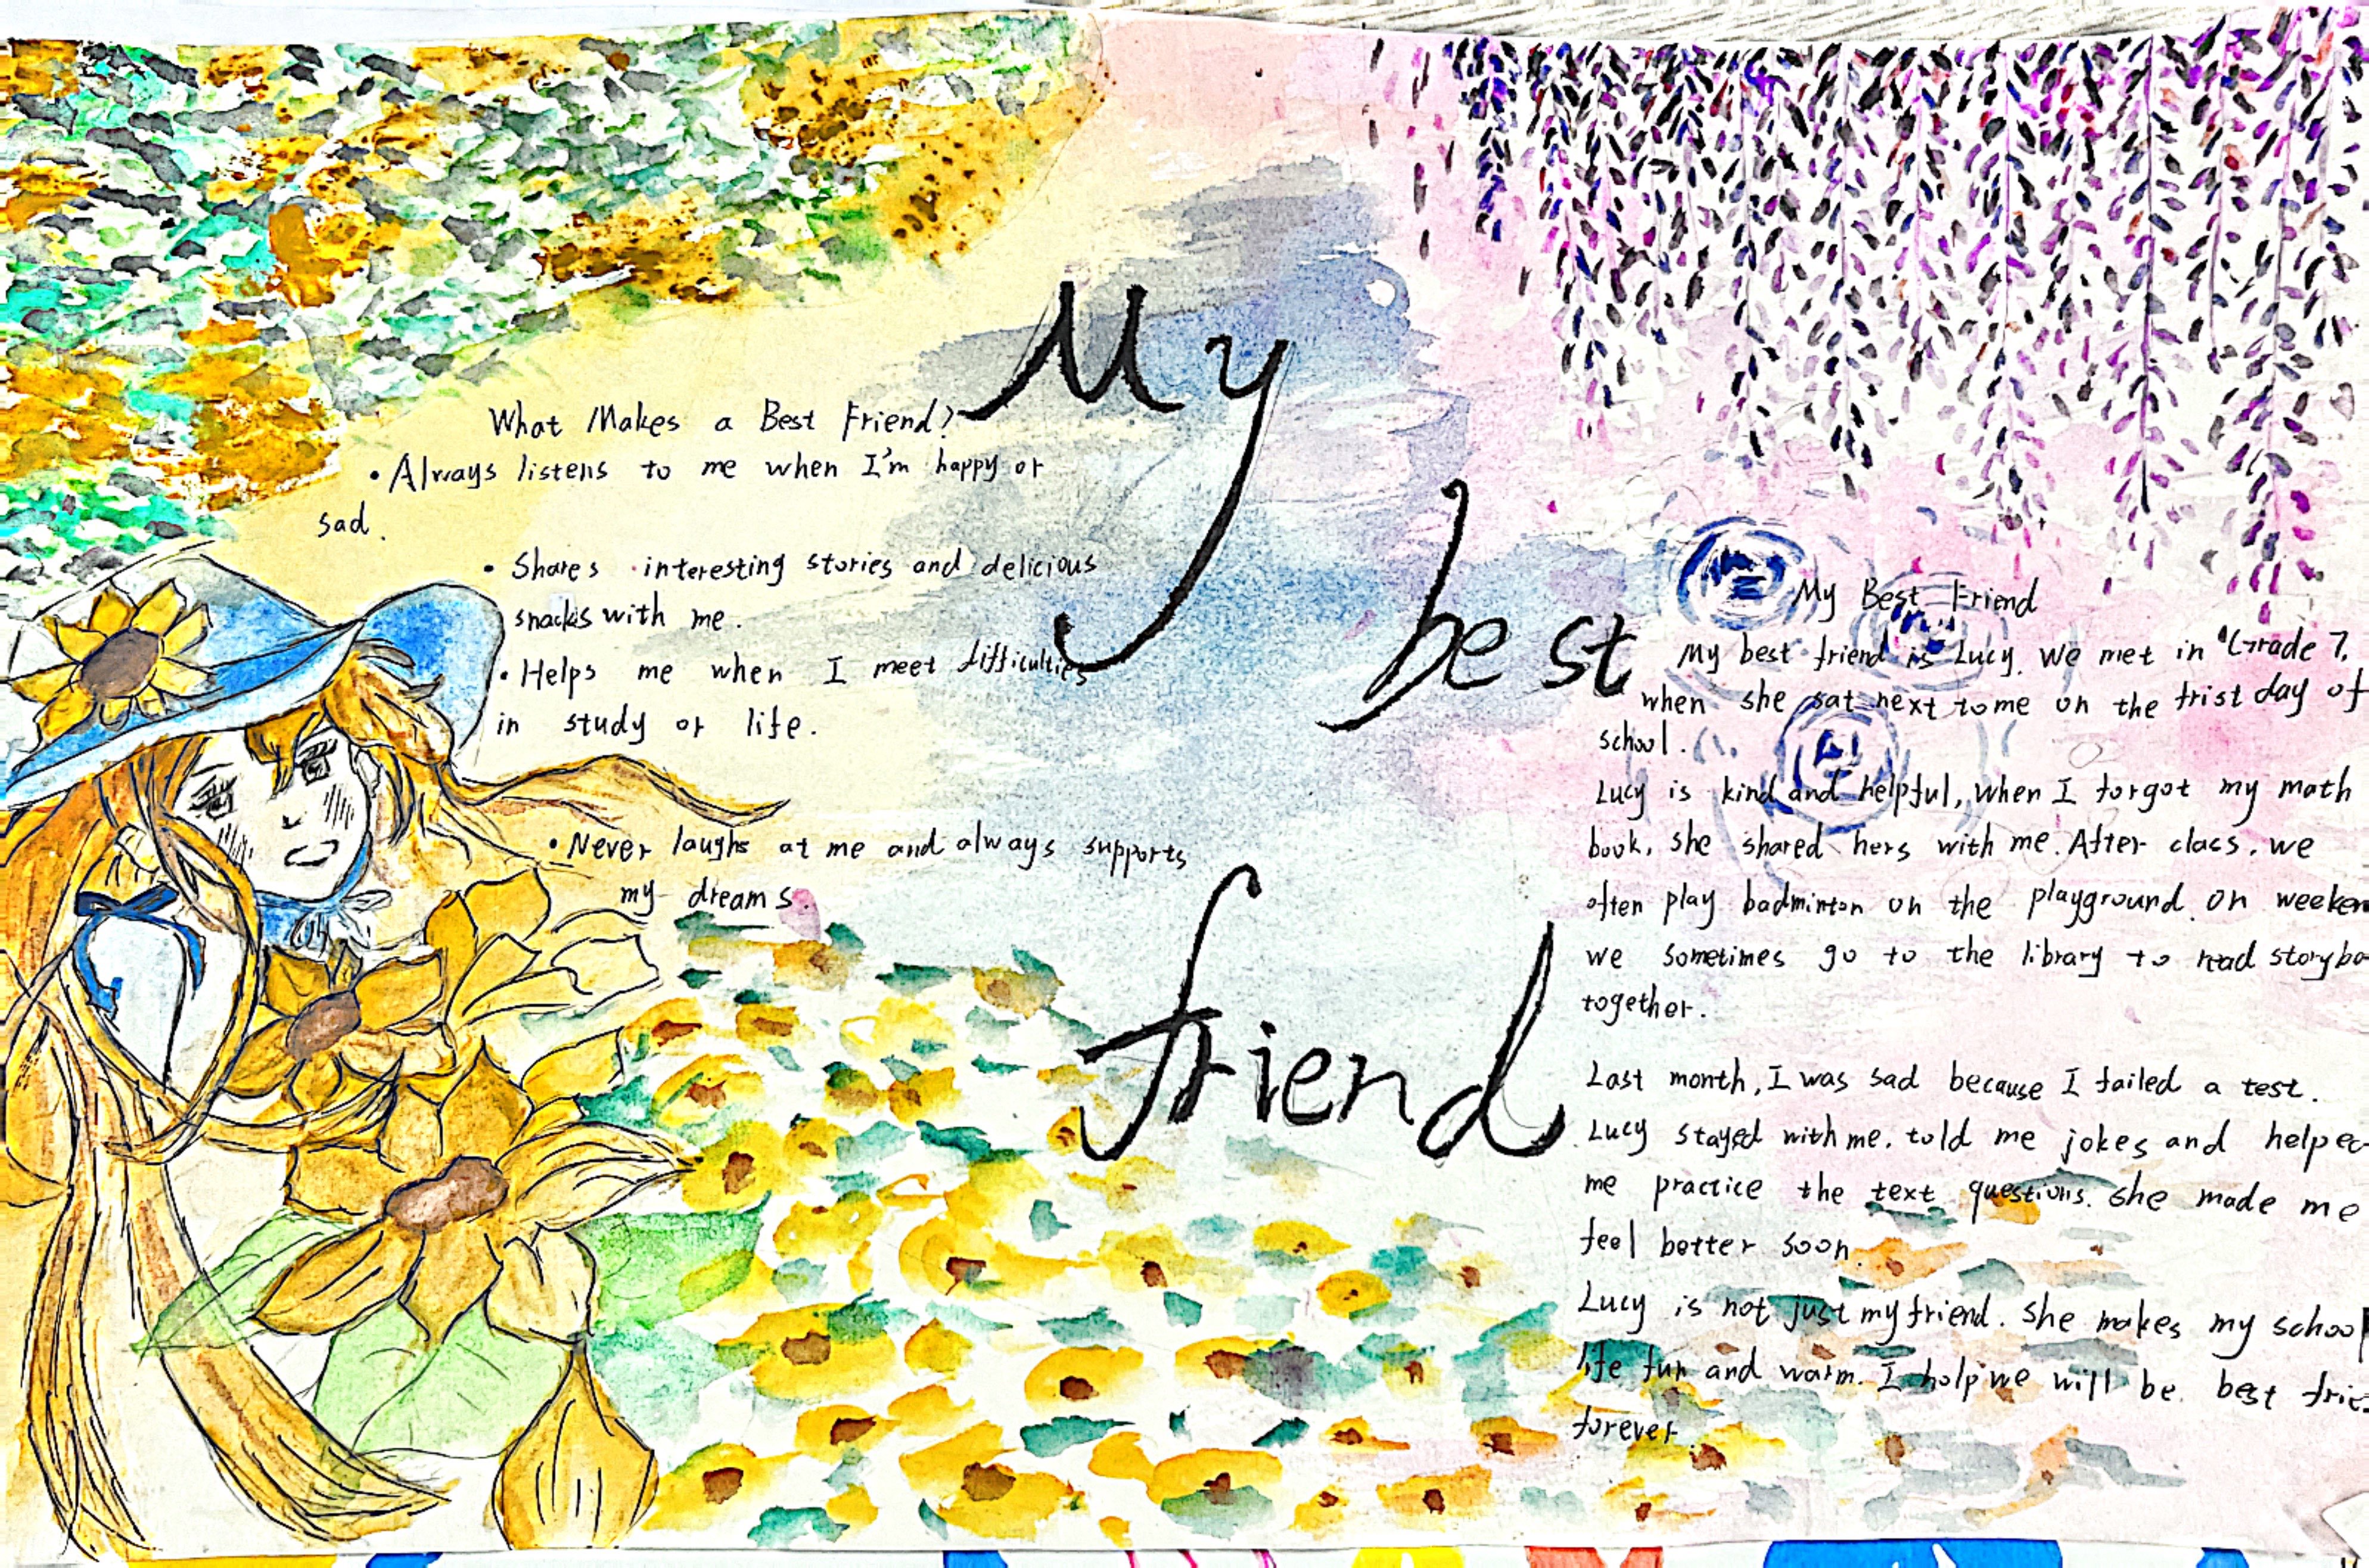 My
best
friend
What Makes a Best Friend?
• Always listens to me when I'm happy or
sad.
• Shares interesting stories and delicious
snacks with me.
• Helps me when I meet difficulties
in study or life.
• Never laughs at me and always supports
my dreams.
My Best Friend
My best friend is Lucy. We met in Grade 7,
when she sat next to me on the frist day of
school.
Lucy is kind and helpful, when I forgot my math
book, she shared hers with me. After class, we
often play badminton on the playground. On weeken
we sometimes go to the library to read storybo
together.
Last month, I was sad because I failed a test.
Lucy stayed with me, told me jokes and helped
me practice the text questions. She made me
feel better soon.
Lucy is not just my friend. She makes my school
life fun and warm. I holp we will be best frie
forever.